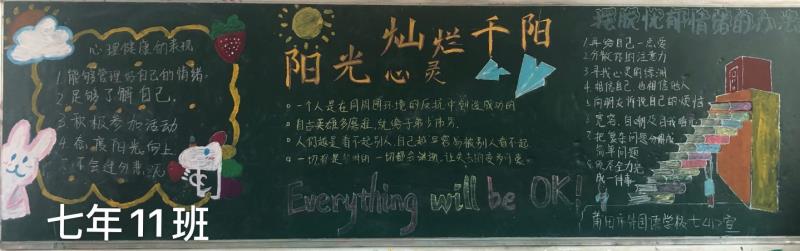 心理健康的表现
1.能够管理好自己的情绪
2.足够了解自己
3.积极参加活动
4.态度阳光向上
5.不会过分悲观
七年11班
阳光心灵
灿烂千阳
一个人是在同周围环境的反抗中创造成功的
自古英雄多磨难
人们越是看不起别人,自己越容易被别人看不起
一切都会
Everything will be OK!
摆脱忧郁情绪的办法
1.再给自己一点爱
2.分散你的注意力
3.寻找心灵的绿洲
4.相信自己,也相信他人
5.向朋友诉说自己的烦恼
6.宽容、自嘲及自我
7.把复杂问题分解成
简单问题
8.尽全力完
成一件事
莆田市外国语学校七(11)宣